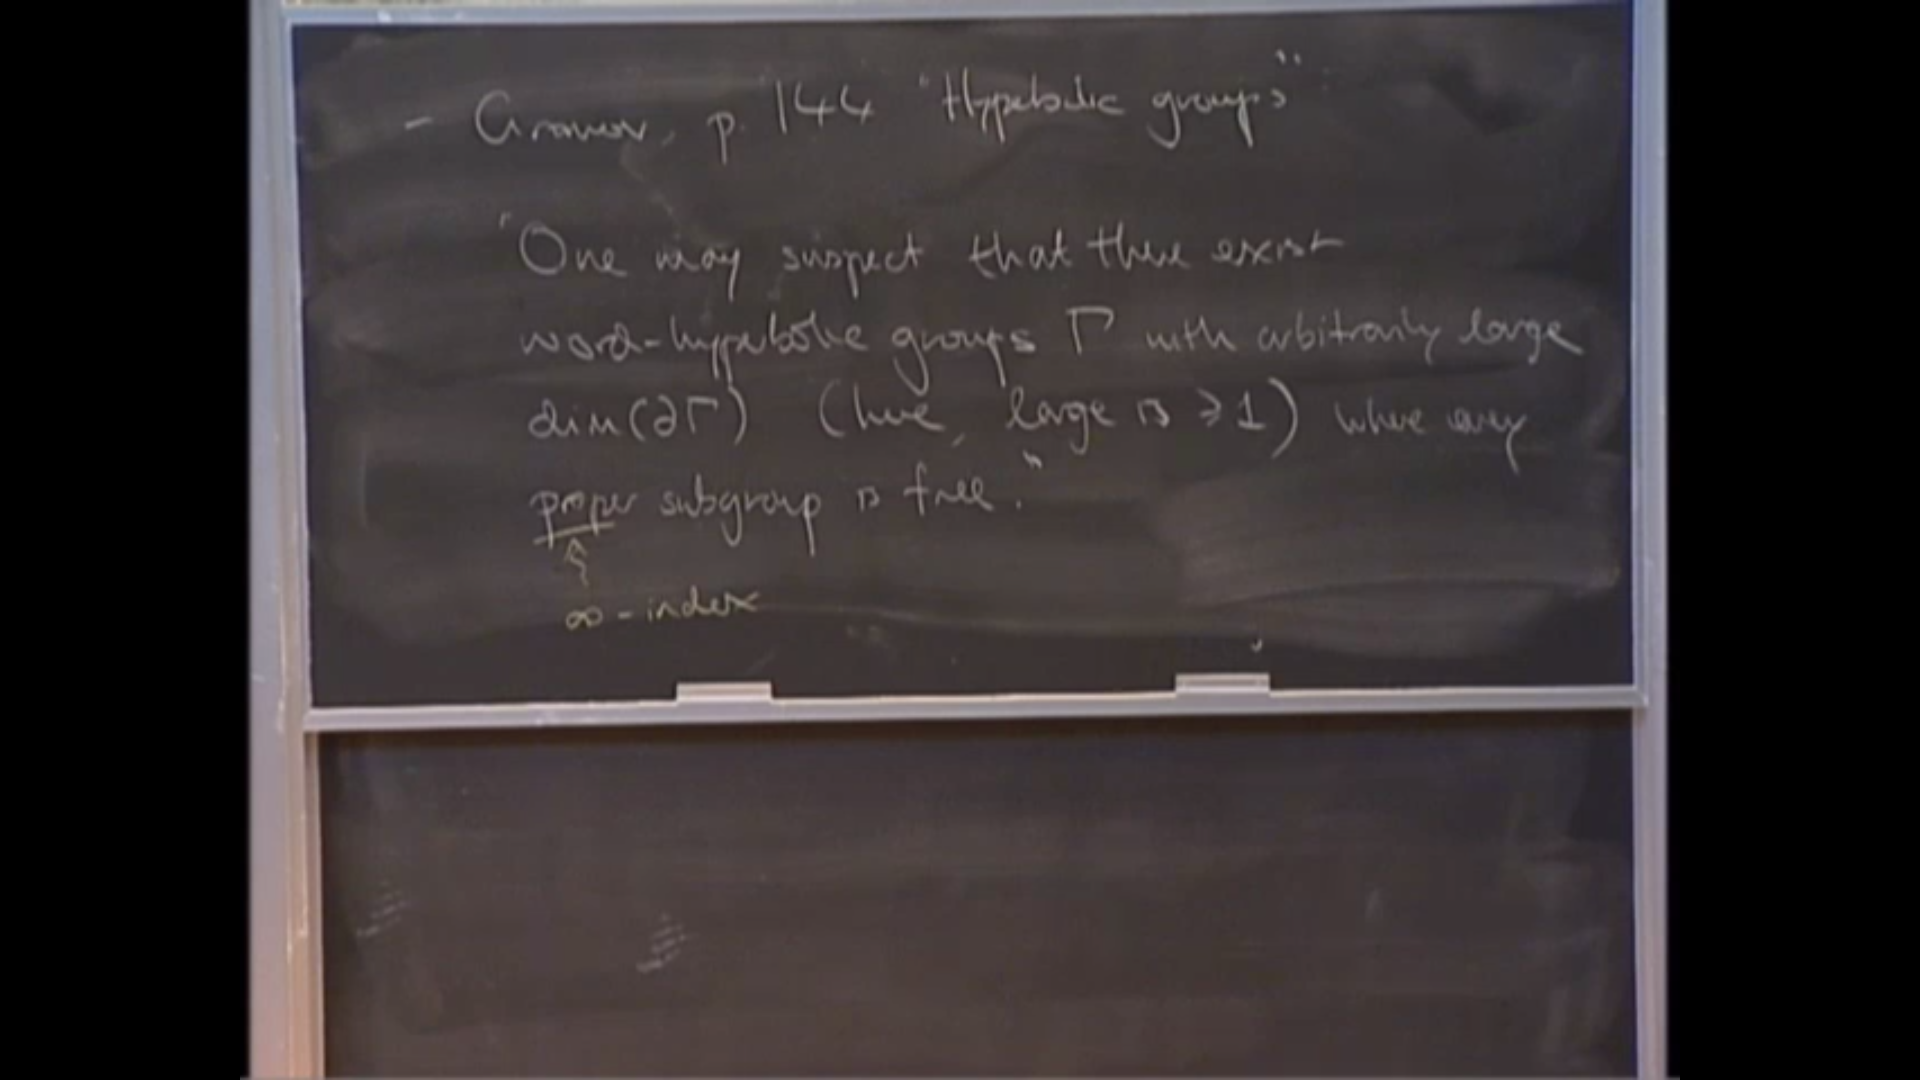 - Gromov, p. 144 "Hyperbolic groups"
"One may suspect that there exist
word-hyperbolic groups Γ with arbitrarily large
dim(∂Γ) (here, large is ≥ 1) where every
proper subgroup is free."
∞-index